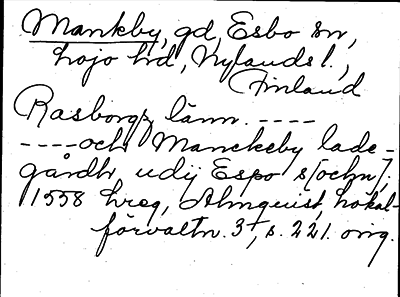 Mankby, gd, Esbo sn,
Lojo hd, Nylands l.,
Finland
Rasborgz länn. ----
----och Manckeby lade-
gårdh udij Espo s[ochn].
1558 hreg, Almquist, Lokal-
förvaltn. 3, s. 221. orig.